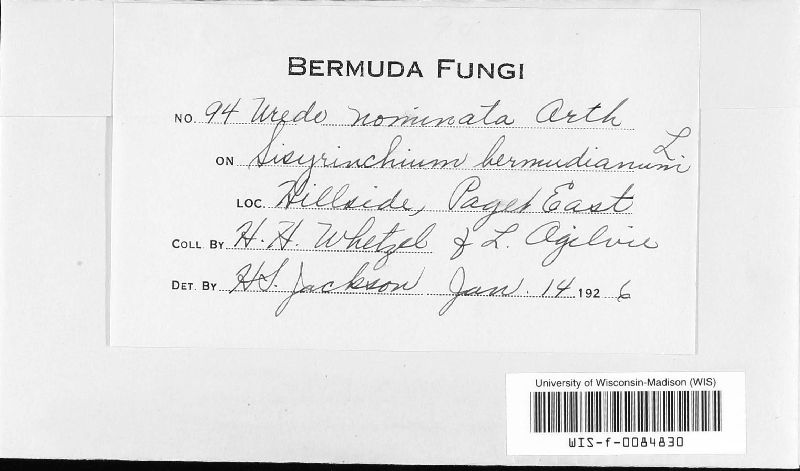 BERMUDA FUNGI
NO. 94 Uredo nominata Arth
ON Sisyrinchium bermudianum L.
LOC. Hillside, Paget East
COLL. BY H. H. Whetzel & L. Ogilvie
DET. BY H.S. Jackson Jan. 14 1926
University of Wisconsin-Madison (WIS)
WIS-f-0084830